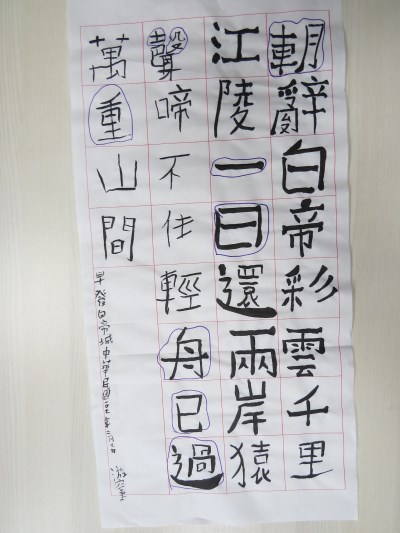 朝辭白帝彩雲千里
江陵一日還兩岸猿
聲啼不住輕舟已過
萬重山間
早發白帝城中華民國